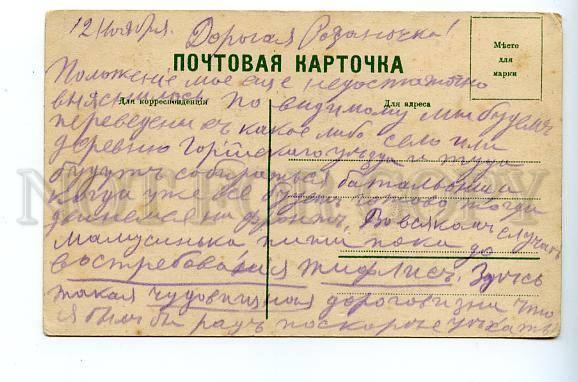 12 Ноября. Дорогая
ПОЧТОВАЯ КАРТОЧКА
Мѣсто
для
марки
Для корреспонденціи
Для адреса
Положение мое еще недостаточно
выяснилось. По видимому мы будемъ
переведены въ какое либо село или
деревню Горійскаго уѣзда и туда
будутъ собираться батальоны и
когда уже все будетъ готово тогда
двинемся на фронтъ. Во всякомъ случаѣ
Мамусинька пиши пока до
востребования Тифлисъ. Здѣсь
такая чудовищная дороговизна что
я былъ бы радъ поскорѣе уѣхать
NOT FOR COPY